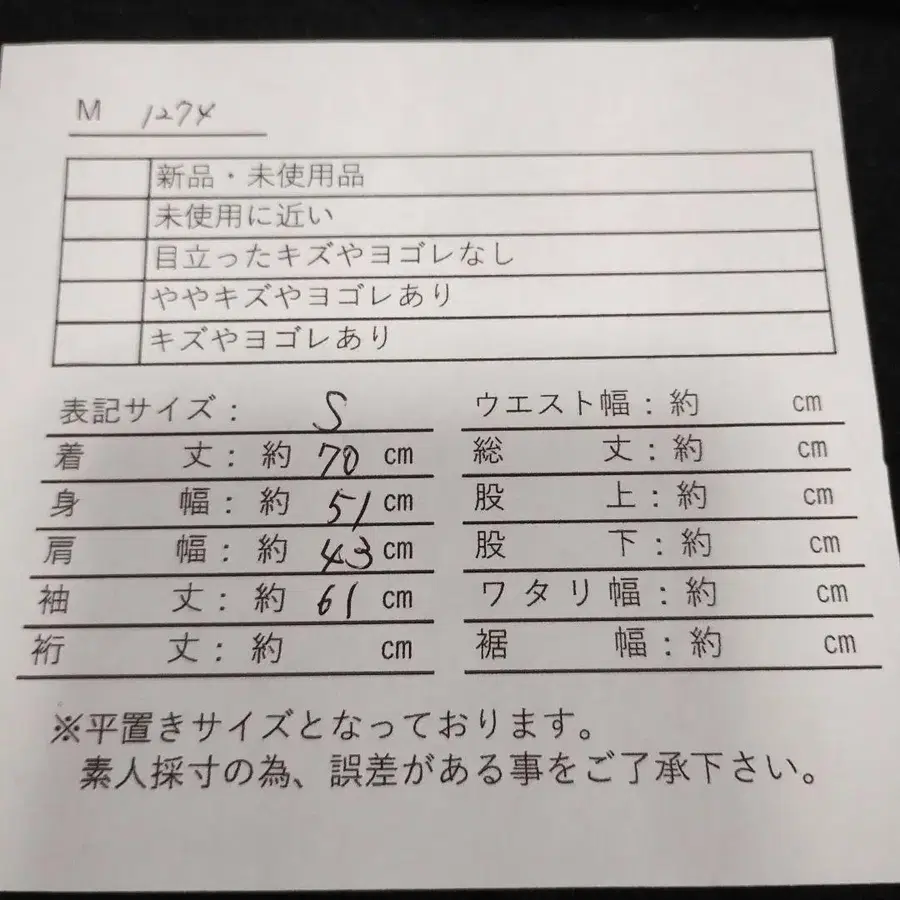 M 1274
新品・未使用品
未使用に近い
目立ったキズやヨゴレなし
ややキズやヨゴレあり
キズやヨゴレあり
表記サイズ： S
着　丈：約 70 cm
身　幅：約 51 cm
肩　幅：約 43 cm
袖　丈：約 61 cm
裄　丈：約 cm
ウエスト幅：約 cm
総　丈：約 cm
股　上：約 cm
股　下：約 cm
ワタリ幅：約 cm
裾　幅：約 cm
※平置きサイズとなっております。
素人採寸の為、誤差がある事をご了承下さい。